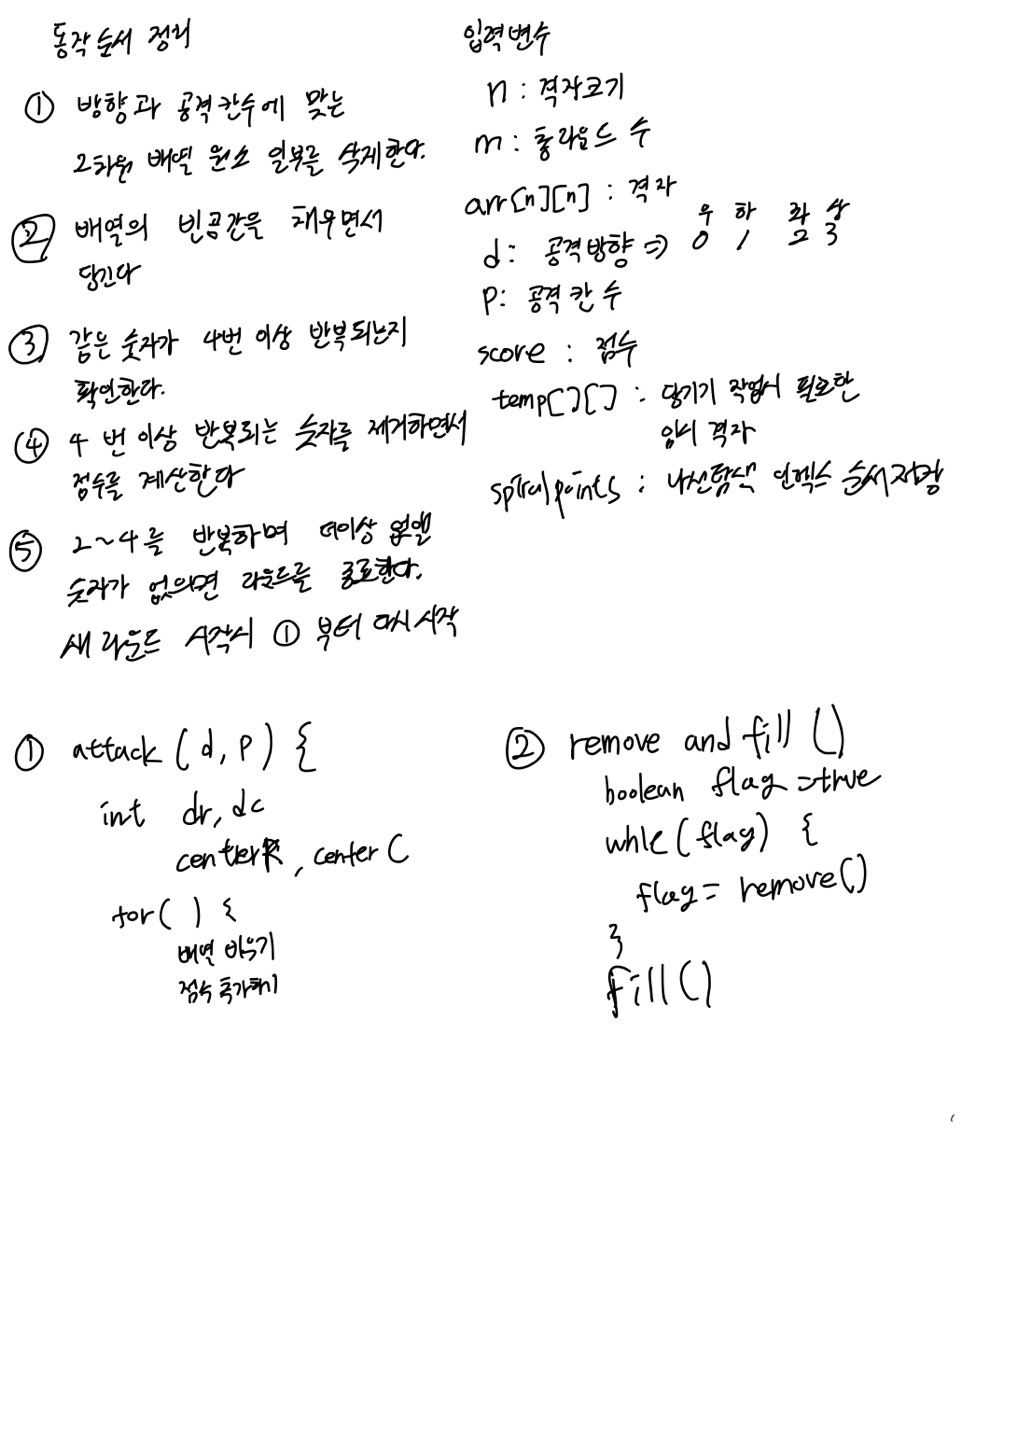 동작순서 정리
① 방향과 공격칸수에 맞는
2차원 배열 원소 일부를 삭제한다.
② 배열의 빈공간을 채우면서
당긴다
③ 같은 숫자가 4번 이상 반복되는지
확인한다.
④ 4번 이상 반복되는 숫자를 제거하면서
점수를 계산한다
⑤ 2~4를 반복하며 더이상 없앨
숫자가 없으면 라운드를 종료한다.
새 라운드 시작시 ① 부터 다시 시작
입력변수
n : 격자크기
m : 총 라운드 수
arr[n][n] : 격자
우 하 좌 상
d : 공격방향 => 0 1 2 3
P : 공격 칸 수
score : 점수
temp[][] : 당기기 작업시 필요한
임시 격자
spiral points : 나선탐색 인덱스 순서저장
① attack (d, p) {
int dr, dc
centerR, center C
for( ) {
배열 비우기
점수 추가하기
② remove and fill ()
boolean flag = true
while (flag) {
flag = remove()
}
fill()